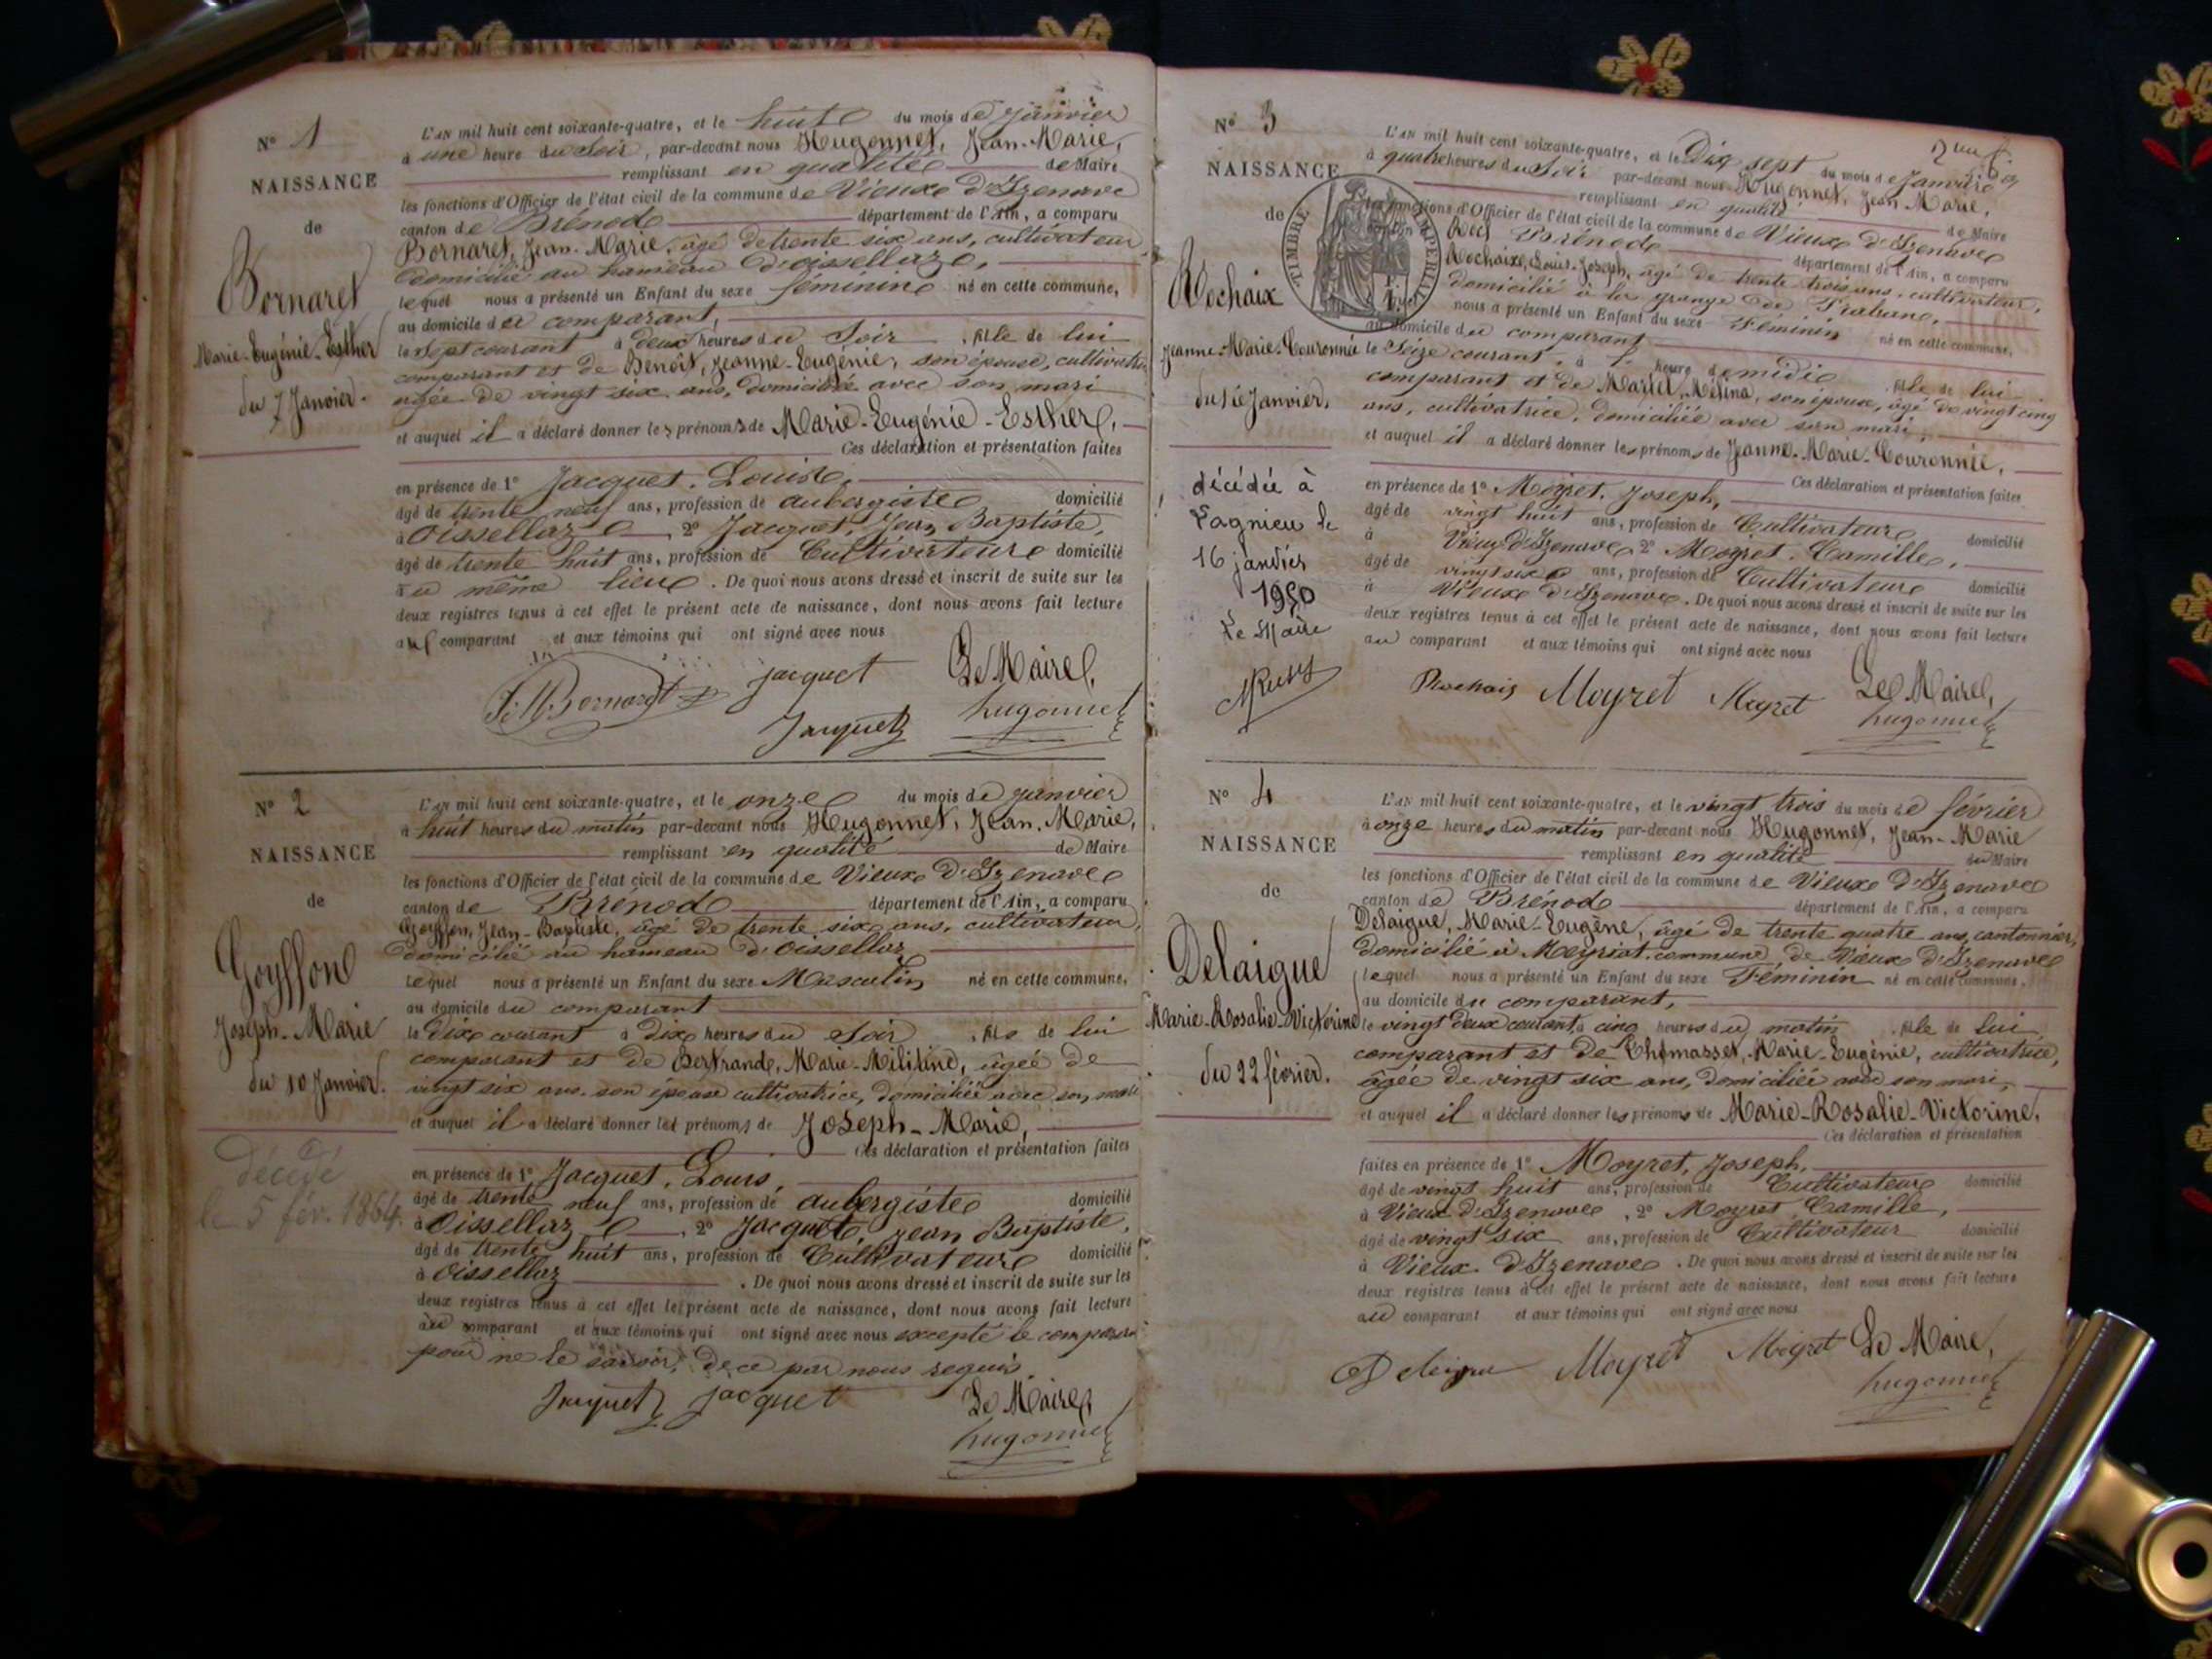 N° 1
NAISSANCE
de
Bornaret
Marie-Eugénie-Esther
du 7 Janvier.
L'AN mil huit cent soixante-quatre, et le huit du mois de janvier
à une heure du soir, par-devant nous Hugonnet, Jean-Marie,
remplissant en qualité de Maire
les fonctions d'Officier de l'état civil de la commune de Vieux d'Izenave
canton de Brénod département de l'Ain, a comparu
Bornaret, Jean-Marie, âgé de trente six ans, cultivateur
domicilié au hameau d'oissellaz,
lequel nous a présenté un Enfant du sexe féminin né en cette commune,
au domicile du comparant,
le sept courant à deux heures du soir, fille de lui
comparant et de Benoît, Jeanne-Eugénie, son épouse, cultivatrice
agée de vingt six ans, domiciliée avec son mari
et auquel il a déclaré donner les prénoms de Marie-Eugénie-Esther,
Ces déclaration et présentation faites
en présence de 1° Jacquet, Louis,
âgé de trente neuf ans, profession de aubergiste domicilié
à Oissellaz, 2° Jacquet, Jean Baptiste,
âgé de trente huit ans, profession de Cultivateur domicilié
au même lieu. De quoi nous avons dressé et inscrit de suite sur les
deux registres tenus à cet effet le présent acte de naissance, dont nous avons fait lecture
au comparant et aux témoins qui ont signé avec nous
J. M. Bornaret jacquet Le Maire,
Jacquet hugonnet
N° 2
NAISSANCE
de
Goyffon
Joseph-Marie
du 10 Janvier.
décédé
le 5 fév. 1864.
L'AN mil huit cent soixante-quatre, et le onze du mois de janvier
à huit heures du matin par-devant nous Hugonnet, Jean-Marie,
remplissant en qualité de Maire
les fonctions d'Officier de l'état civil de la commune de Vieux d'Izenave
canton de Brénod département de l'Ain, a comparu
Goyffon, Jean-Baptiste, âgé de trente six ans, cultivateur,
domicilié au hameau d'oissellaz
lequel nous a présenté un Enfant du sexe Masculin né en cette commune,
au domicile du comparant
le dix courant à dix heures du soir, fils de lui
comparant et de Bertrand, Marie-Militine, agée de
vingt six ans, son épouse cultivatrice, domiciliée avec son mari
et auquel il a déclaré donner les prénoms de Joseph-Marie,
Ces déclaration et présentation faites
en présence de 1° Jacquet, Louis,
âgé de trente neuf ans, profession de aubergiste domicilié
à Oissellaz, 2° Jacquet, jean Baptiste,
âgé de trente huit ans, profession de Cultivateur domicilié
à Oissellaz. De quoi nous avons dressé et inscrit de suite sur les
deux registres tenus à cet effet le présent acte de naissance, dont nous avons fait lecture
au comparant et aux témoins qui ont signé avec nous excepté le comparant
pour ne le savoir, de ce par nous requis
Jacquet jacquet Le Maire,
hugonnet
N° 3
NAISSANCE
de
TIMBRE IMPÉRIAL
Rochaix
Jeanne-Marie-Couronnée
du 16 Janvier,
décédée à
Lagnieu le
16 janvier
1950
Le Maire
L'AN mil huit cent soixante-quatre, et le Dix sept du mois de Janvier
à quatre heures du Soir par-devant nous Hugonnet, Jean Marie,
remplissant en qualité de Maire
les fonctions d'Officier de l'état civil de la commune de Vieux d'Izenave
Brénod département de l'Ain, a comparu
Rochaix, Louis-Joseph, âgé de trente trois ans, cultivateur,
domicilié à la grange de
nous a présenté un Enfant du sexe Féminin né en cette commune,
au domicile du comparant
le Seize courant, à heure de midi fille de lui
comparant et de Martel, Mélina, son épouse, âgé de vingt cinq
ans, cultivatrice, domiciliée avec son mari,
et auquel il a déclaré donner les prénoms de Jeanne-Marie-Couronnée,
Ces déclaration et présentation faites
en présence de 1° Moyret, Joseph,
âgé de vingt huit ans, profession de Cultivateur domicilié
à Vieux d'Izenave, 2° Moyret, Camille,
âgé de vingt six ans, profession de Cultivateur domicilié
à Vieux d'Izenave. De quoi nous avons dressé et inscrit de suite sur les
deux registres tenus à cet effet le présent acte de naissance, dont nous avons fait lecture
au comparant et aux témoins qui ont signé avec nous
Rochaix Moyret Moyret Le Maire,
hugonnet
N° 4
NAISSANCE
de
Delaigue
Marie-Rosalie-Victorine
du 22 février.
L'AN mil huit cent soixante-quatre, et le vingt trois du mois de février
à onze heures du matin par-devant nous Hugonnet, Jean-Marie
remplissant en qualité de Maire
les fonctions d'Officier de l'état civil de la commune de Vieux d'Izenave
canton de Brénod département de l'Ain, a comparu
Delaigue, Marie-Eugène, âgé de trente quatre ans, cantonnier,
domicilié à Meyriat, commune de Vieux d'Izenave
lequel nous a présenté un Enfant du sexe Féminin né en cette commune,
au domicile du comparant,
le vingt deux courant, à cinq heures du matin, fille de lui
comparant et de Thomasset, Marie-Eugénie, cultivatrice,
âgée de vingt six ans, domiciliée avec son mari,
et auquel il a déclaré donner les prénoms de Marie-Rosalie-Victorine,
Ces déclaration et présentation
faites en présence de 1° Moyret, Joseph,
âgé de vingt huit ans, profession de Cultivateur domicilié
à Vieux d'Izenave, 2° Moyret, Camille,
âgé de vingt six ans, profession de Cultivateur domicilié
à Vieux d'Izenave. De quoi nous avons dressé et inscrit de suite sur les
deux registres tenus à cet effet le présent acte de naissance, dont nous avons fait lecture
au comparant et aux témoins qui ont signé avec nous
Delaigue Moyret Moyret Le Maire,
hugonnet